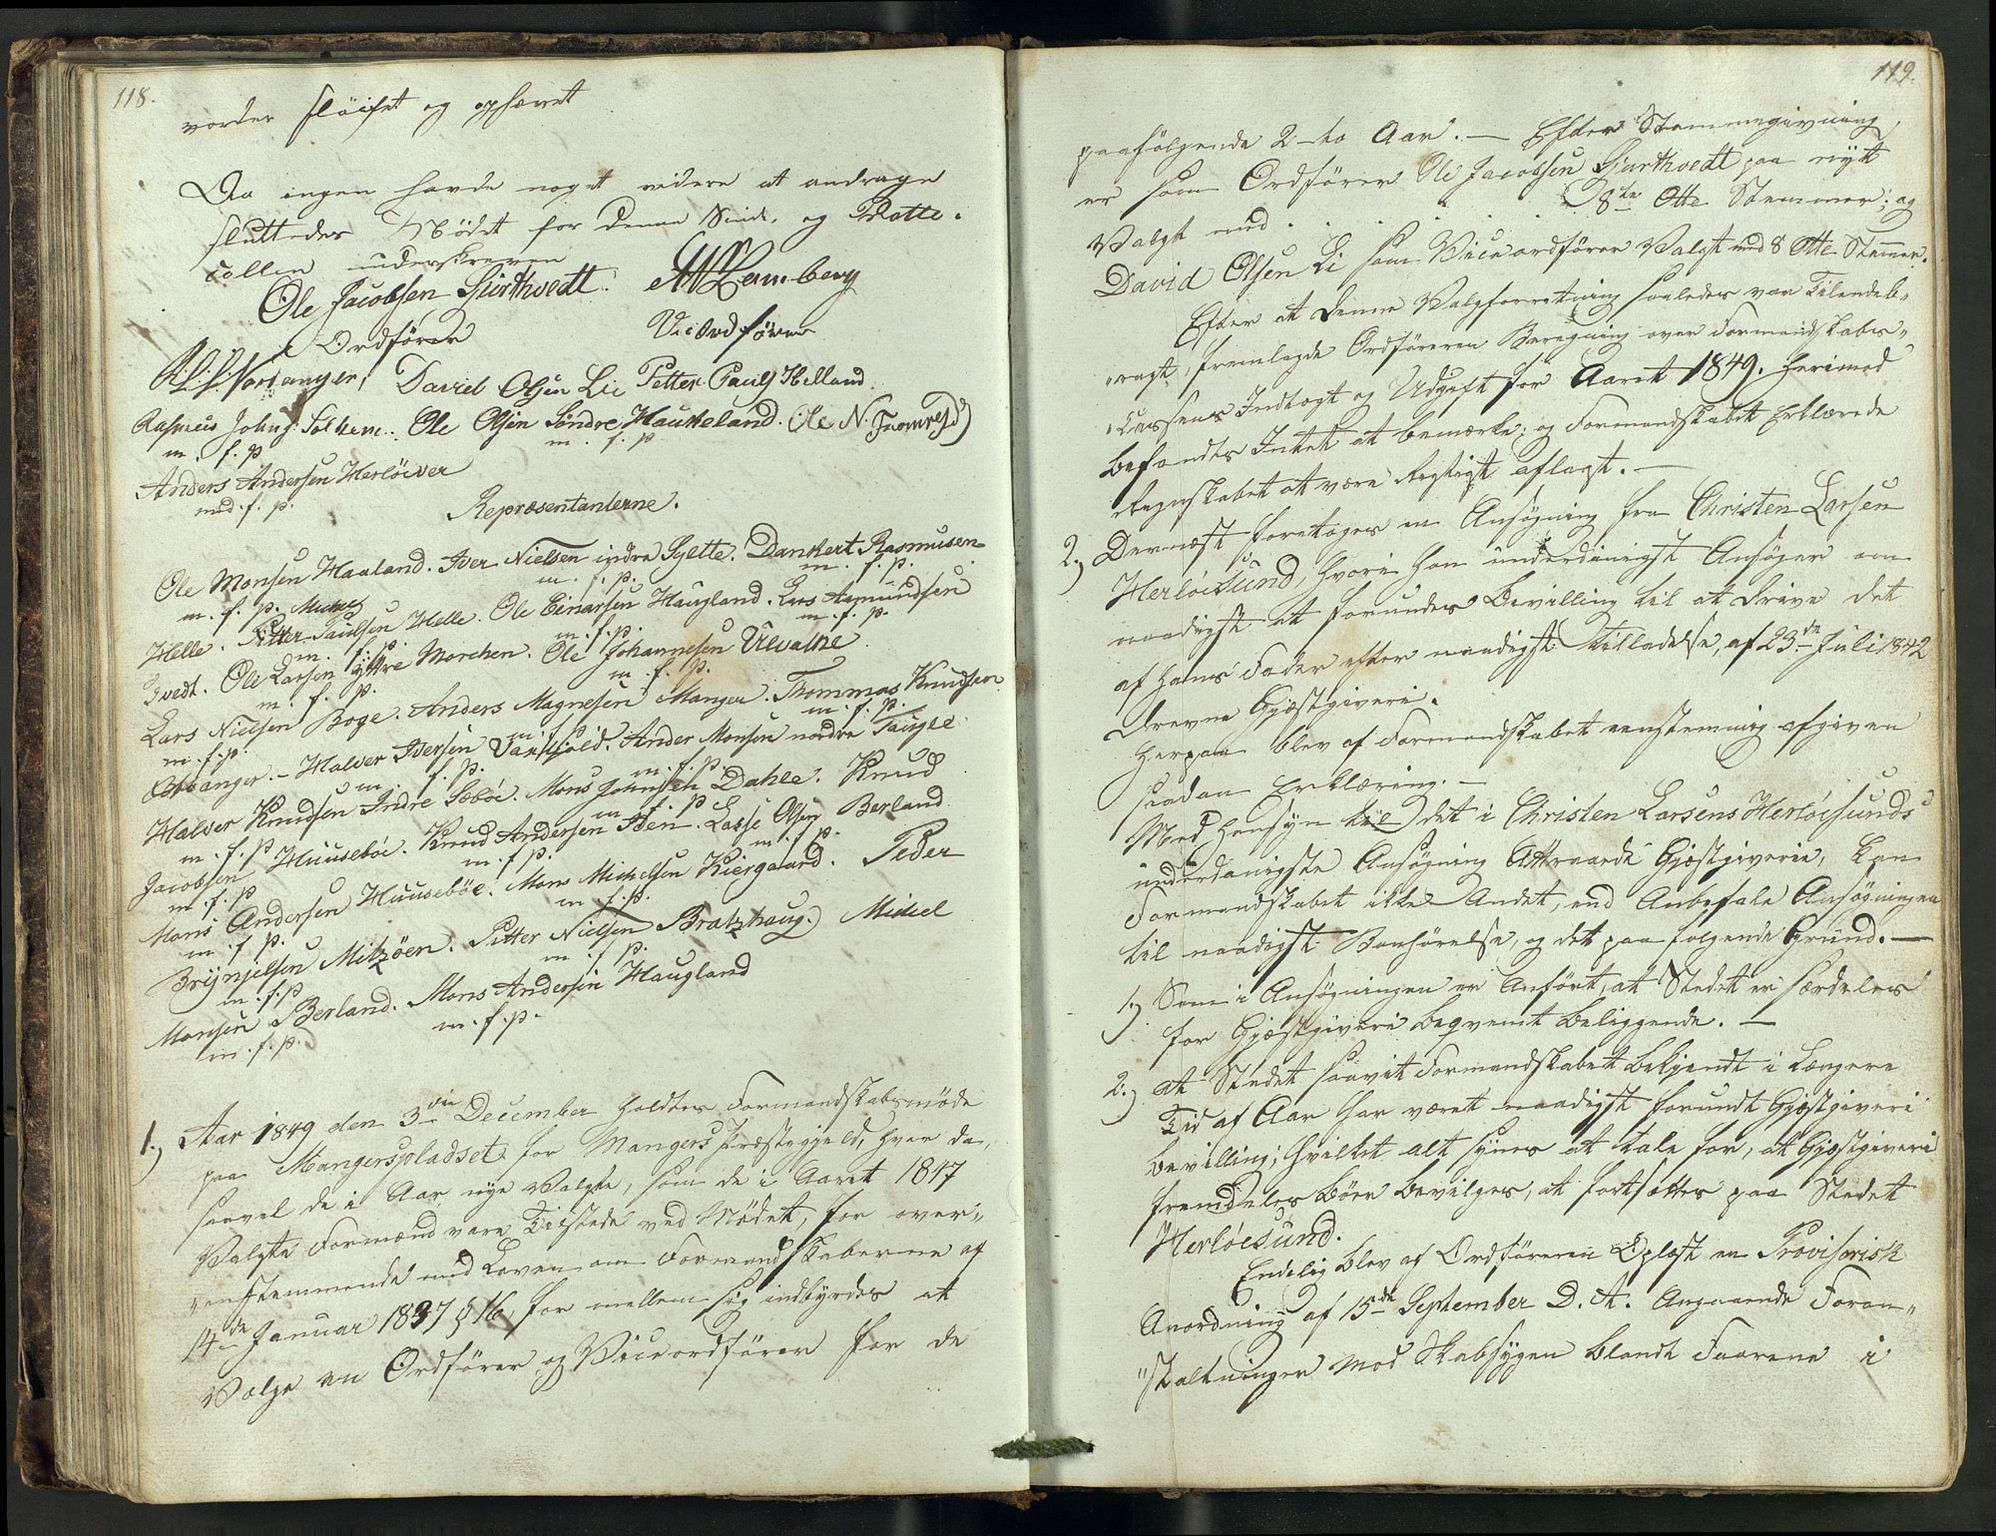 118.
vorder sløifet og ophævet
Da ingen havde noget videre at andrage
sluttedes Mödet for denne Sinde, og Protto-
collen underskreven
Ole Jacobsen Gjurthvedt.
Ordfører
Viceordfører
David Olsen Lie Petter Pauls Helland
Rasmus Johns. Solhem. Ole Olsen Söndre Haukeland. Ole N.
m. f. P m. f. p
Anders Andersen Herlöever
med. f. p.
Repræsentanterne.
Ole Monsen Haaland. Iver Nielsen indre Sylte. Dankert Rasmusen
m. f. p. m. f. p. m. f. p.
Helle. Petter Paulsen Helle. Ole Einarsen Haugland. Lars Asmundsen
m. f. p. m. f. p. m. f. p.
Tvedt. Ole Larsen yttre Morchen. Ole Johannesen Ulvatne
m. f. p. m. f. p.
Lars Nielsen Boge. Anders Magnesen Manger. Thommas Knudsen
m. f. p. m. f. p.
Halver Iversen Vardtjold. Ander Monsen nordre Taugle
m. f. p. m. f. p.
Halver Knudsen Indre Sæböe. Mons Johnsen Dahle. Knud
m. f. p m. f. p
Jacobsen Huusebøe. Knud Andersen Steen. Lasse Olsen Berland
m. f. p m. f. p. m. f. p.
Mons Andersen Huuseböe. Mons Michelsen Kiergaard. Peder
m. f. p. m. f. p.
Brynjelsen Mitzöen. Petter Nielsen Bratzhaug. Mickel
m. f. p m. f. p.
Monsen Berland. Mons Andersen Haugland
m. f. p. m. f. p.
1.) Aar 1849 den 3die December holdtes Formandskabsmöde
paa Mangerspladset for Mangers Præstegjeld, hvor da,
saavel de i Aar nye Valgte, som de i Aaret 1847
Valgte Formænd vare Tilstede ved Mödet, for over-
"ensstemmende med Loven om Formandskaberne af
14de Januar 1837 § 16, for mellem sig indbyrdes at
Vælge en Ordfører og Viceordfører for de
119.
paafölgende 2-to Aar. — Efter Stemmegivning
er som Ordfører Ole Jacobsen Gjurthvedt paa nytt
Valgt med . . . . . . 8te Otte Stemmer; og
David Olsen Li som Viceordfører Valgt med 8 Otte Stemmer.
Efter at denne Valgforretning saaledes var Tilendeb-
"ragt, fremlagde Ordføreren Beregning over Formandskabs-
"Cassens Indtægt og Udgift for Aaret 1849. Herimod
befandtes Intet at bemærke; og Formandskabet Erklærede
Regnskabet at være Rigtigt aflagt. —
2.) Dernæst foretoges en Ansøgning fra Christen Larsen
Herlöesund, hvori han underdanigst Ansøger om
naadigst at forundes Bevilling til at drive det
af hans Fader efter naadigst Tilladelse, af 23de Juli 1842
drevne Gjæstgiveri.
Herpaa blev af Formandskabet eenstemmig afgiven
saadan Erklæring. —
Med Hensyn til det i Christen Larsens Herlöesunds
underdanigste Ansøgning Attraaede Gjæstgiverie, kan
Formandskabet ikke Andet, end Anbefale Ansøgningen
til naadigst Bønhørelse, og det paa følgende Grund. —
1.) Som i Ansøgningen er Anført, at Stedet er særdeles
for Gjæstgiveri beqvemt beliggende. —
2.) at Stedet saavit Formandskabet bekjendt i længere
Tid af Aar har været naadigst forundt Gjæstgiveri
bevilling; hvilket alt synes at tale for, at Gjæstgiveri
fremdeles bör bevilges, at fortsættes paa Stedet
Herlöesund.
Endelig blev af Ordføreren Oplæst en Provisorisk
Anordning af 15de September D. A. Angaaende Foran-
"staltninger mod Skabsygen blandt Faarene i